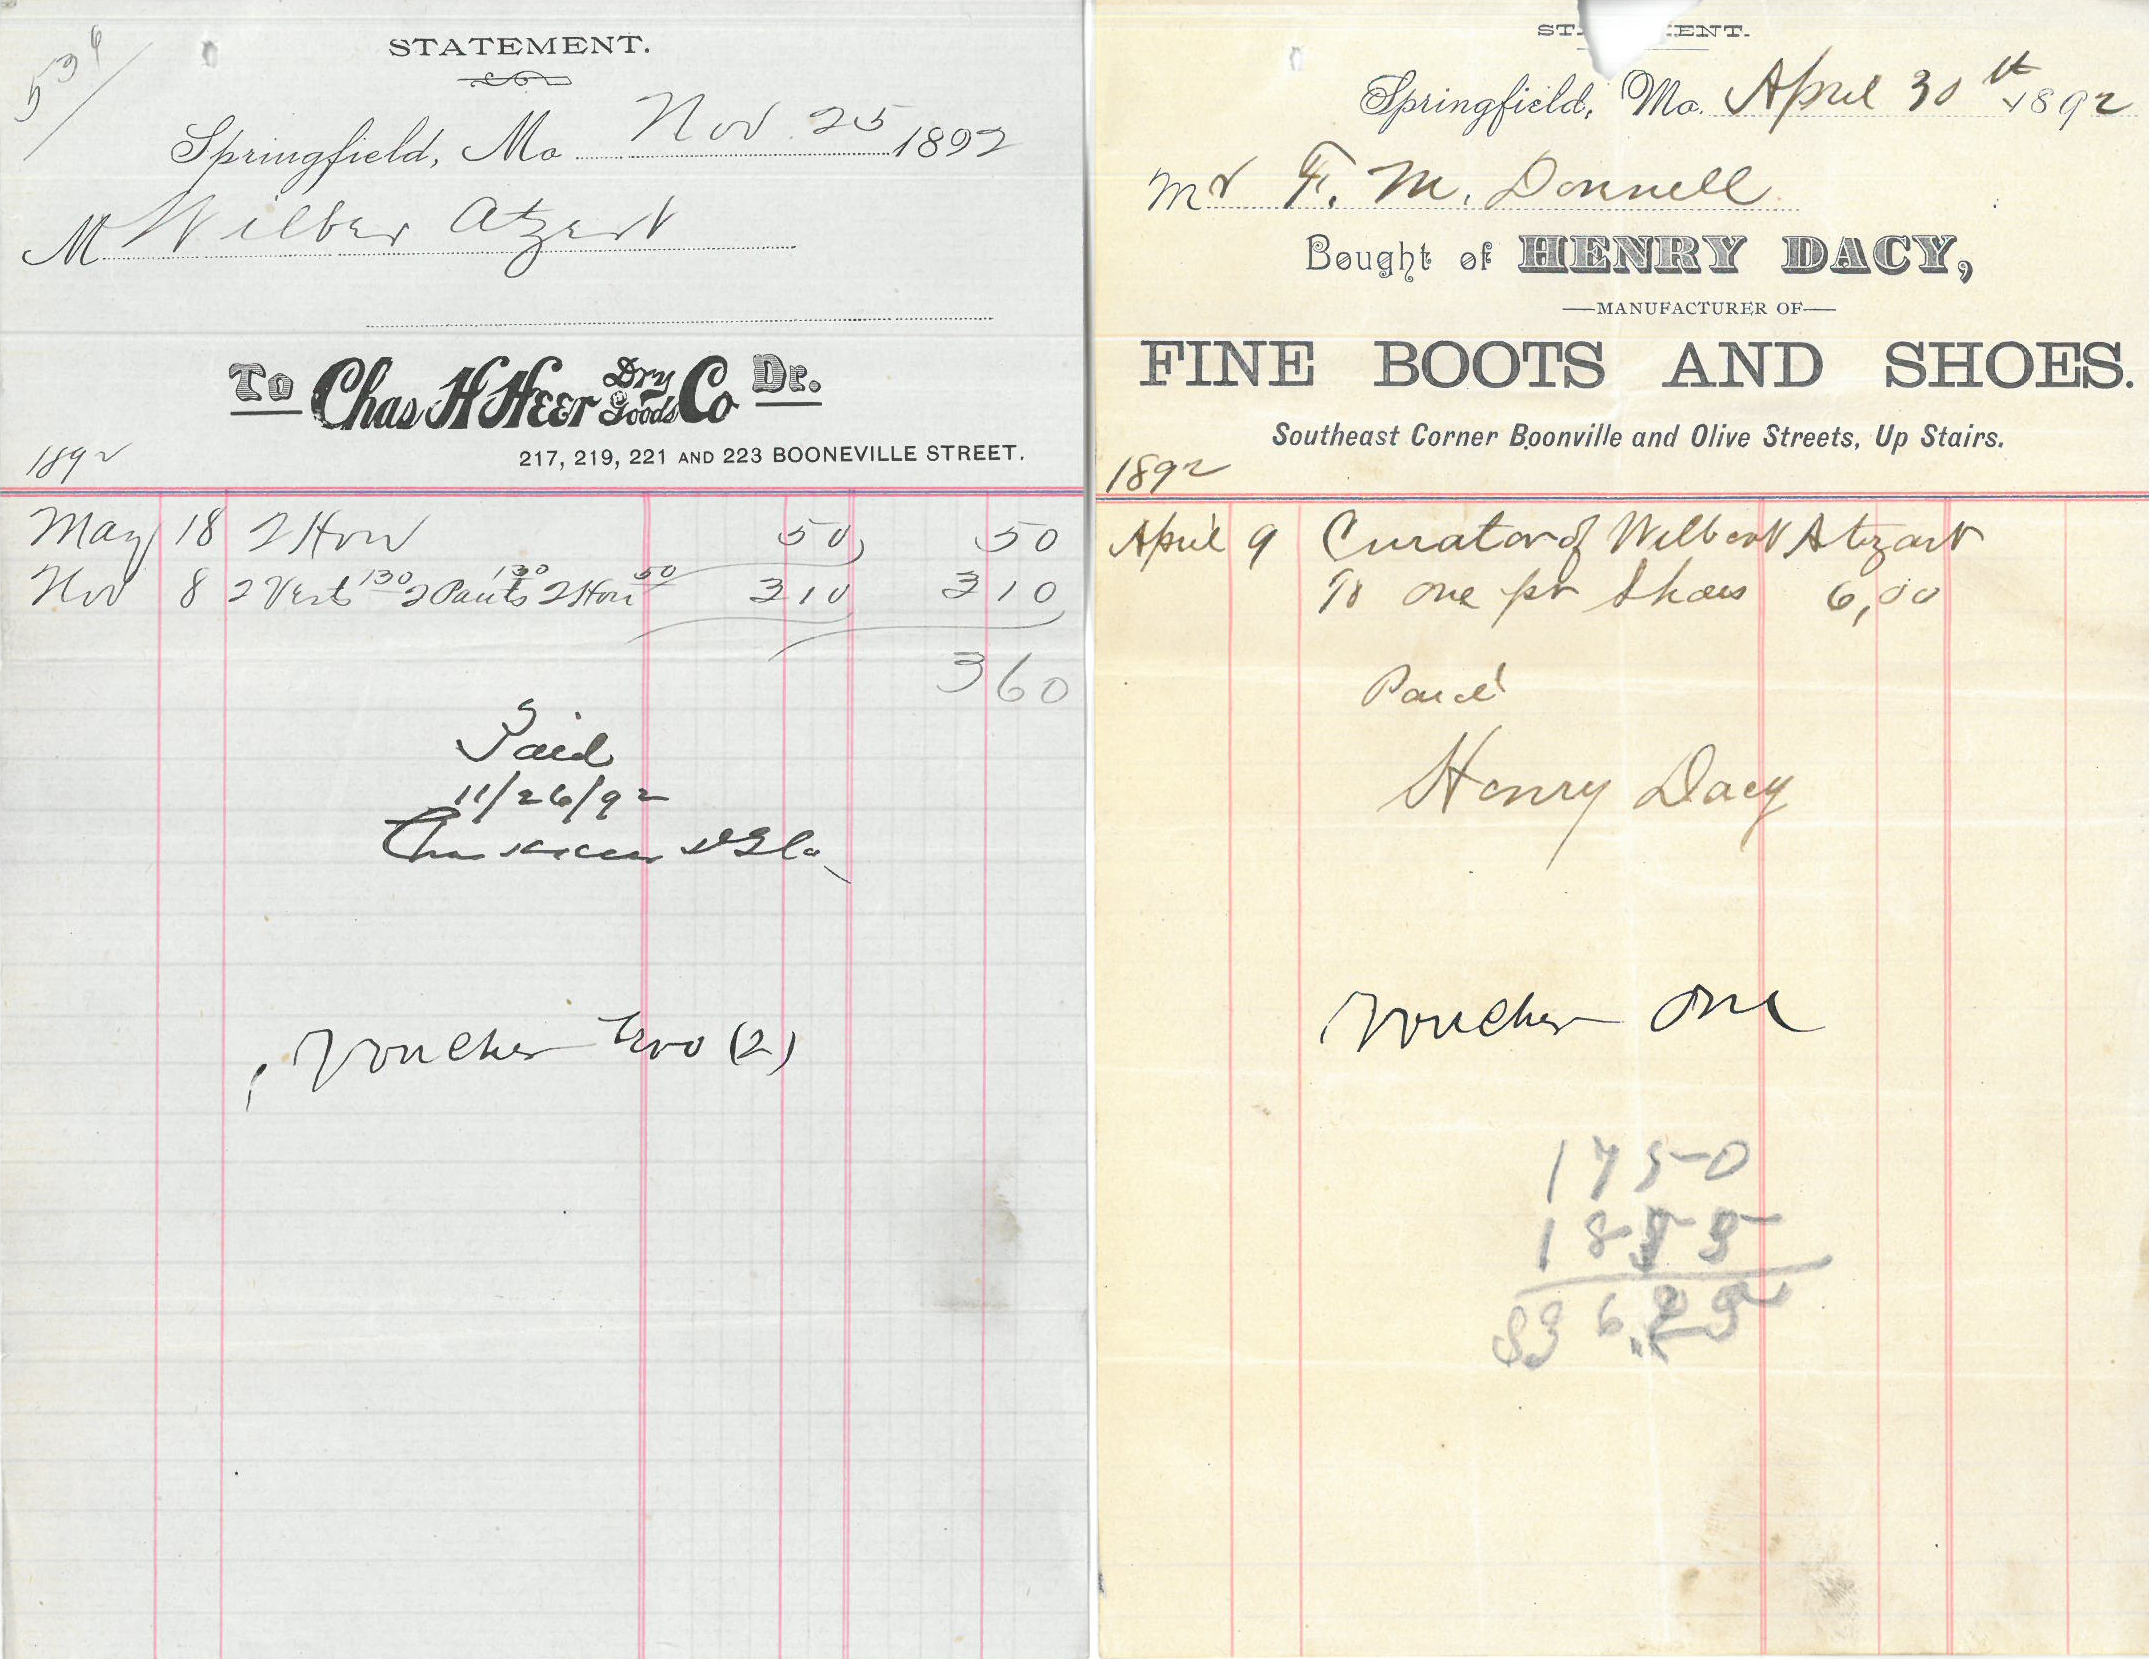 534
STATEMENT.
Springfield, Mo Nov. 25 1892
M Wilber Atzert
To Chas H Heer Dry Goods Co Dr.
217, 219, 221 AND 223 BOONEVILLE STREET.
1892
May 18 2 Hose 50 50
Nov 8 2 Vests 130 2 Pants 130 2 Hose 50 310 310
360
Paid
11/26/92
Voucher two (2)
Springfield, Mo. April 30th 1892
Mr F. M. Donnell
Bought of HENRY DACY,
MANUFACTURER OF
FINE BOOTS AND SHOES.
Southeast Corner Boonville and Olive Streets, Up Stairs.
1892
April 9 Curator of Wilbert Atzart
To one pr Shoes 6,00
Paid
Henry Dacy
Voucher One
1750